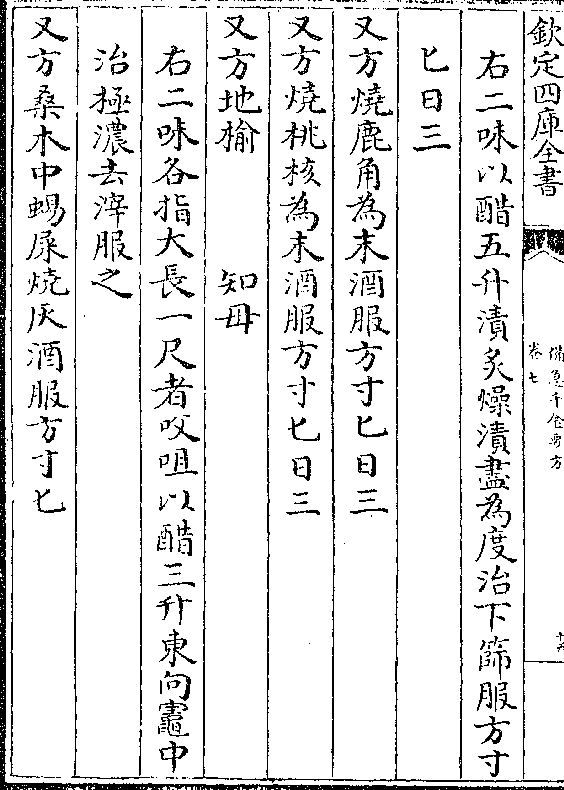 欽定四庫全書
備急千金要方
卷七
右二味以醋五升漬炙燥漬盡為度治下篩服方寸
匕日三
又方燒鹿角為末酒服方寸匕日三
又方燒桃核為末酒服方寸匕日三
又方地榆　　知母
右二味各指大長一尺者㕮咀以醋三升東向竈中
治極濃去滓服之
又方桑木中蝎屎燒灰酒服方寸匕